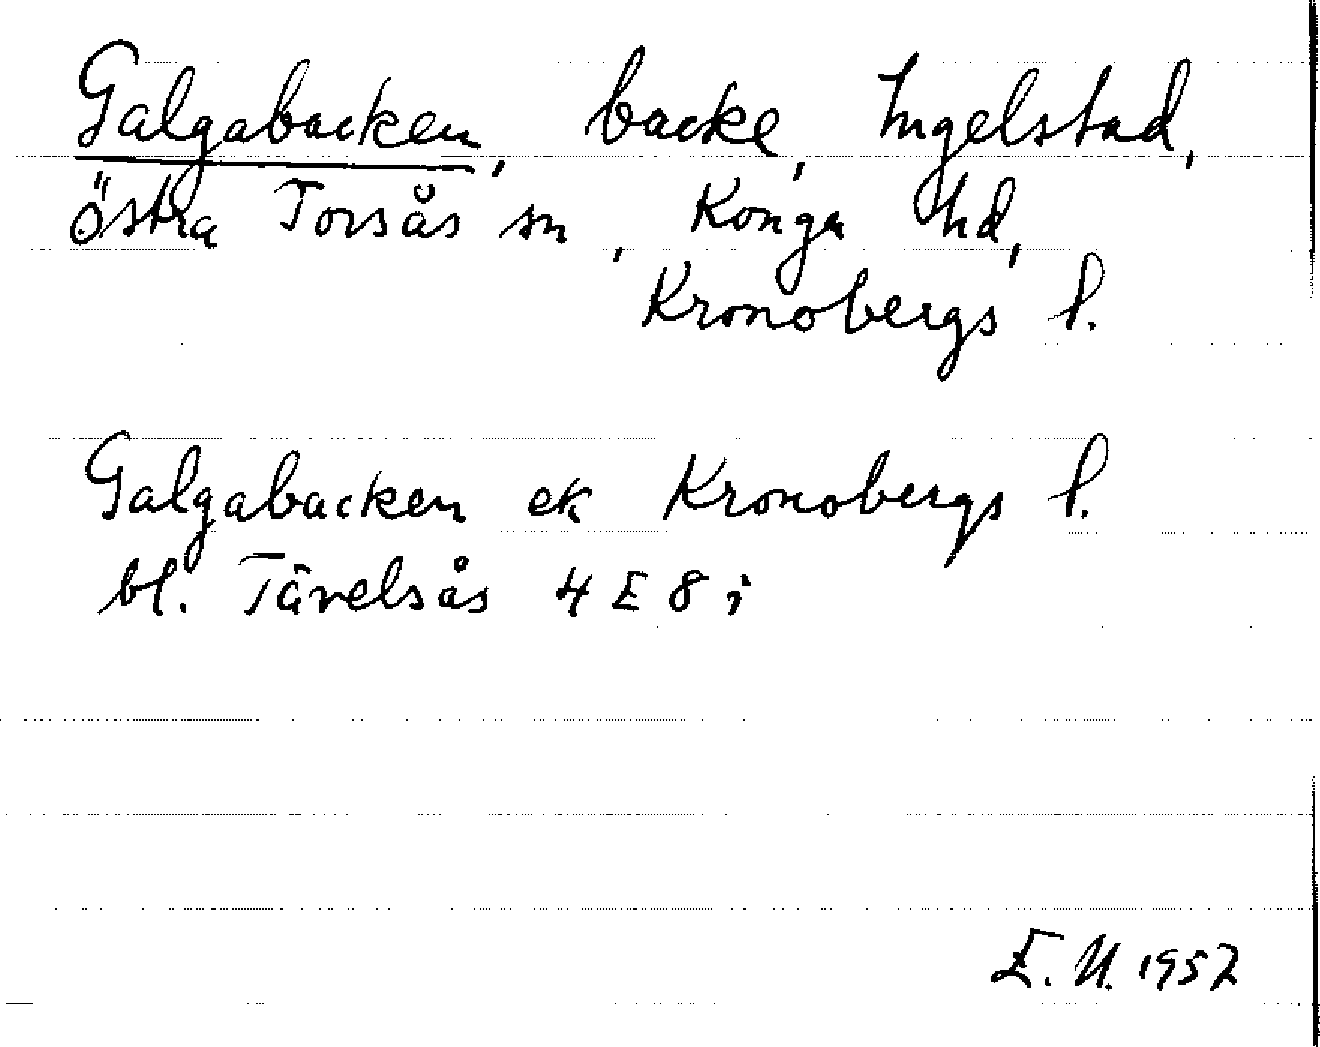 Galgabacken, backe, Ingelstad,
östra Torsås sn, Konga hd,
Kronobergs l.
Galgabacken ek Kronobergs l.
bl. Tävelsås 4 E 8 i
E. U. 1957